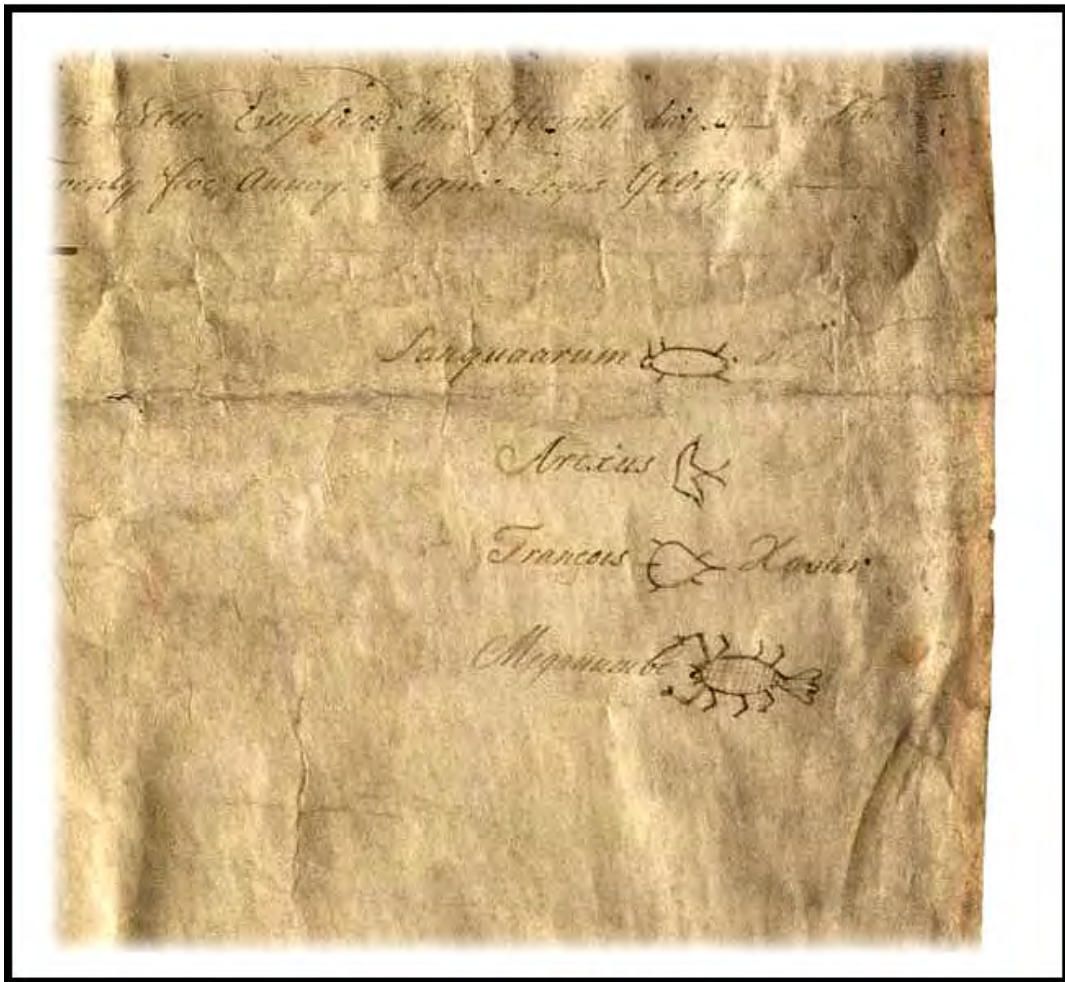 in New England the fifteenth day
Twenty five Annoq Regni Regis Georgii
Sanquaarum
Arexus
François Xavier
Meganumbe